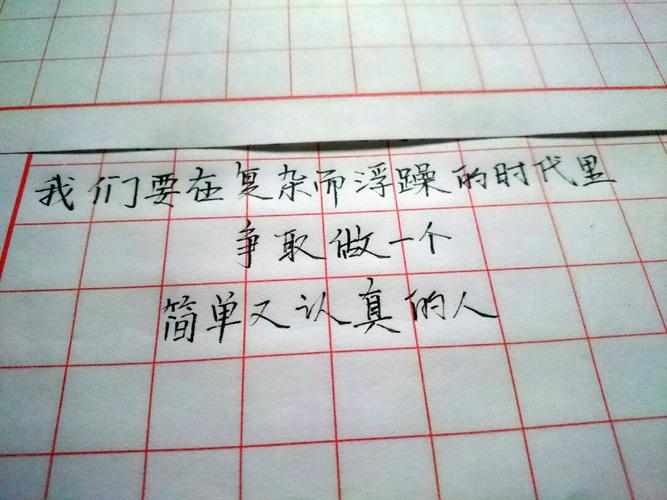 我们要在复杂而浮躁的时代里
争取做一个
简单又认真的人